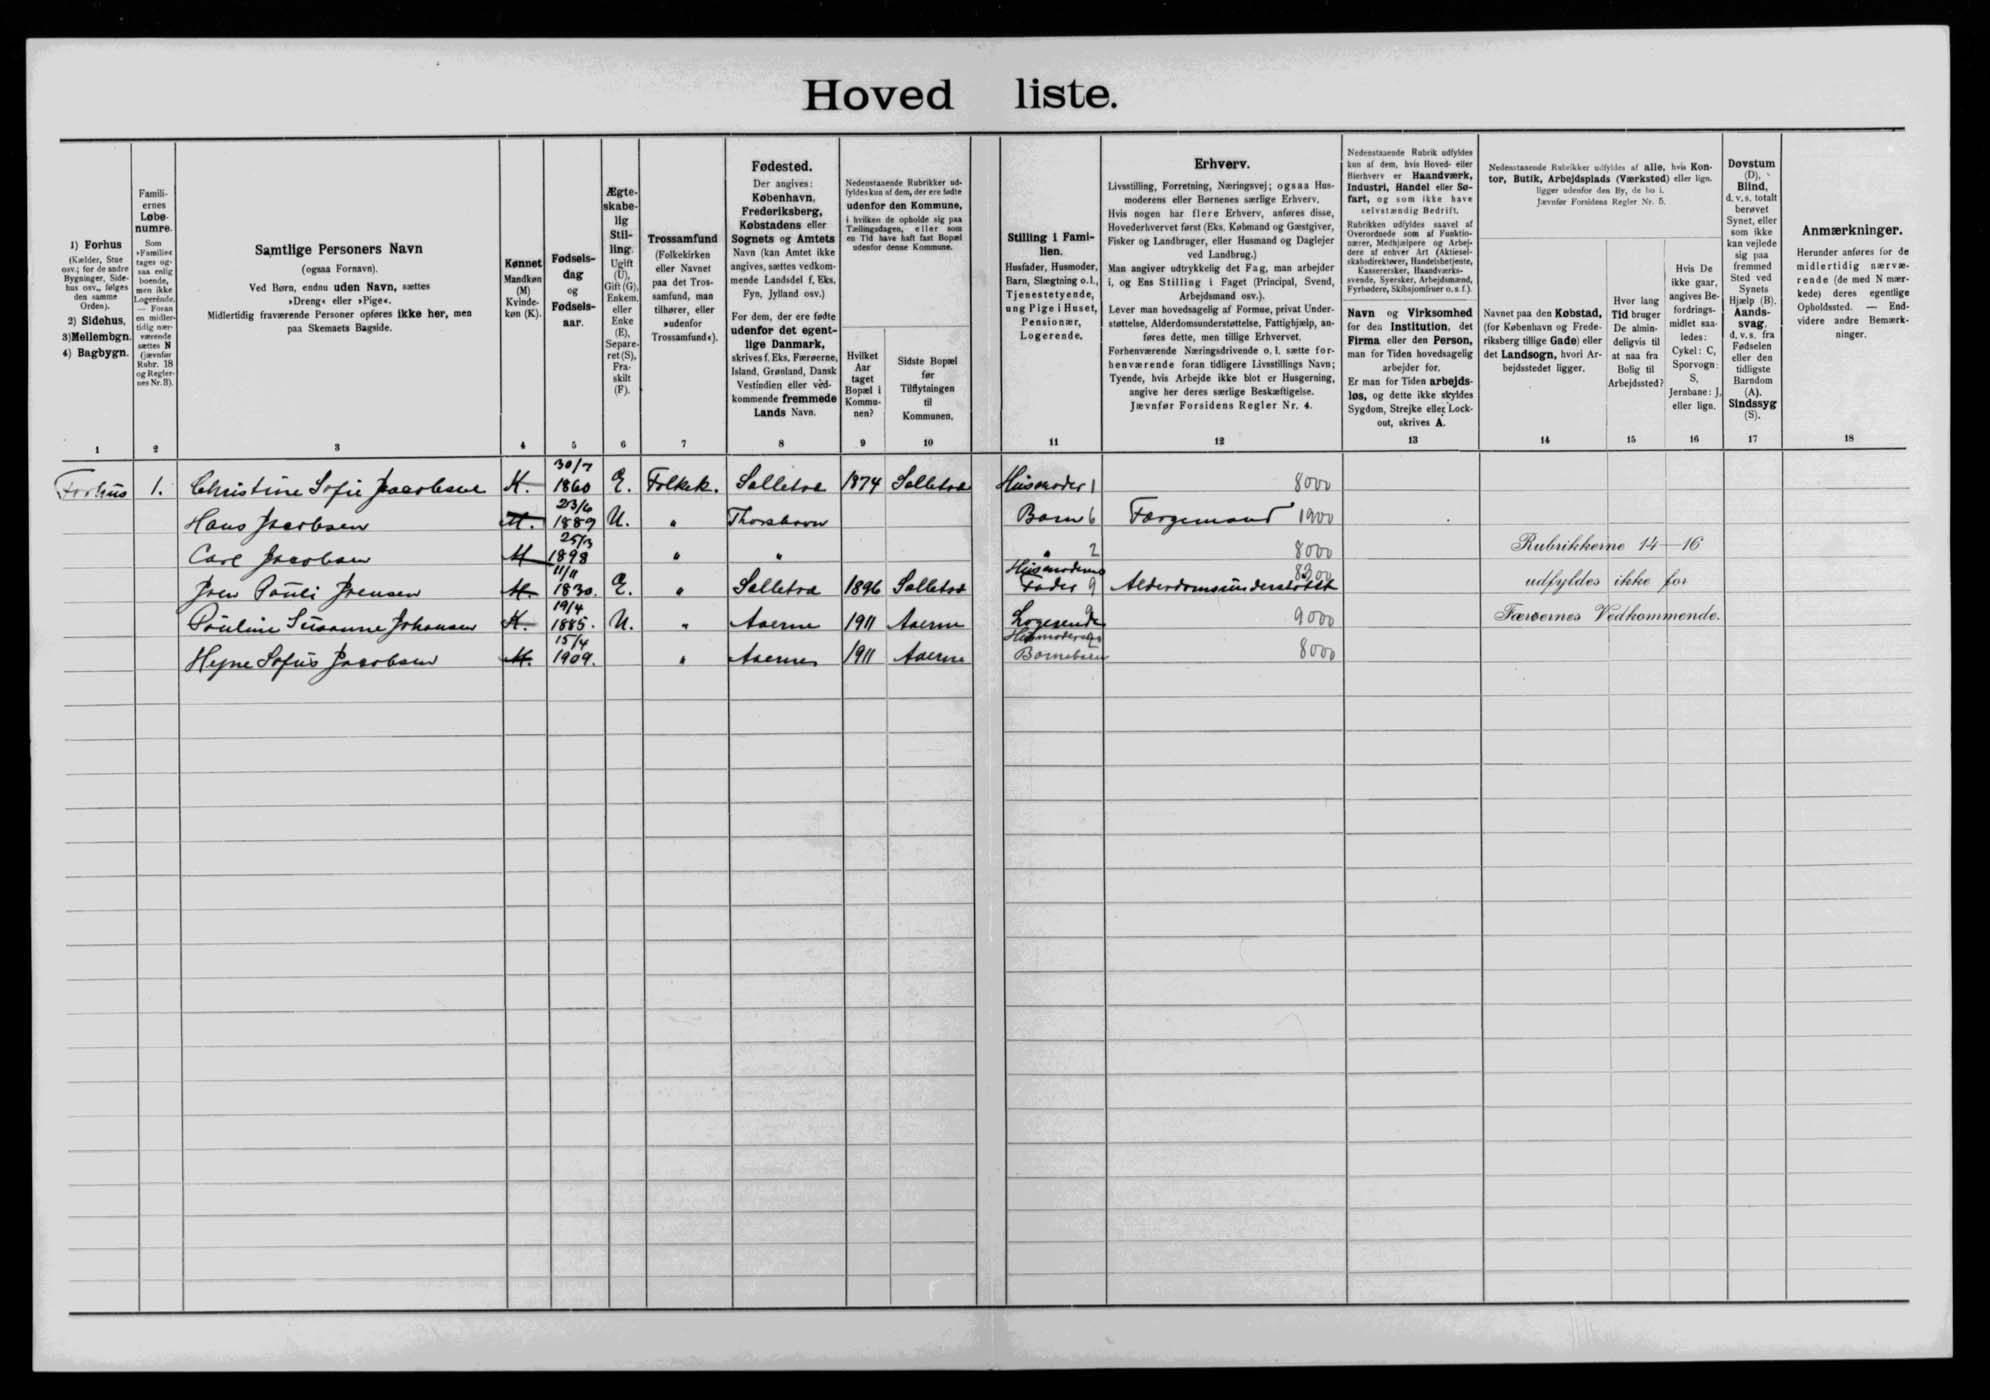 Hoved liste.
1) Forhus
(Kælder, Stue
osv.; for de andre
Bygninger, Side-
hus osv., følges
den samme
Orden).
2) Sidehus,
3) Mellembgn.
4) Bagbygn.
Famili-
ernes
Løbe-
numre.
Som
»Familie«
tages og-
saa enlig
boende,
men ikke
Logerende.
— Foran
en midler-
tidig nær-
værende
sættes N
(jævnfør
Rubr. 18
og Regler-
nes Nr. 3).
Samtlige Personers Navn
(ogsaa Fornavn).
Ved Børn, endnu uden Navn, sættes
»Dreng« eller »Pige«.
Midlertidig fraværende Personer opføres ikke her, men
paa Skemaets Bagside.
Kønnet
Mandkøn
(M)
Kvinde-
køn (K).
Fødsels-
dag
og
Fødsels-
aar.
Ægte-
skabe-
lig
Stil-
ling.
Ugift
(U),
Gift (G),
Enkem.
eller
Enke
(E),
Separe-
ret (S),
Fra-
skilt
(F).
Trossamfund
(Folkekirken
eller Navnet
paa det Tros-
samfund, man
tilhører, eller
»udenfor
Trossamfund«).
Fødested.
Der angives:
København,
Frederiksberg,
Købstadens eller
Sognets og Amtets
Navn (kan Amtet ikke
angives, sættes vedkom-
mende Landsdel f. Eks.
Fyn, Jylland osv.)
For dem, der ere fødte
udenfor det egent-
lige Danmark,
skrives f. Eks. Færøerne,
Island, Grønland, Dansk
Vestindien eller ved-
kommende fremmede
Lands Navn.
Nedenstaaende Rubrikker ud-
fyldes kun af dem, der ere fødte
udenfor den Kommune,
i hvilken de opholde sig paa
Tællingsdagen, eller som
en Tid have haft fast Bopæl
udenfor denne Kommune.
Hvilket
Aar
taget
Bopæl i
Kommu-
nen?
Sidste Bopæl
før
Tilflytningen
til
Kommunen.
Stilling i Fami-
lien.
Husfader, Husmoder,
Barn, Slægtning o.l.,
Tjenestetyende,
ung Pige i Huset,
Pensionær,
Logerende.
Erhverv.
Livsstilling, Forretning, Næringsvej; ogsaa Hus-
moderens eller Børnenes særlige Erhverv.
Hvis nogen har flere Erhverv, anføres disse,
Hovederhvervet først (Eks. Købmand og Gæstgiver,
Fisker og Landbruger, eller Husmand og Daglejer
ved Landbrug.)
Man angiver udtrykkelig det Fag, man arbejder
i, og Ens Stilling i Faget (Principal, Svend,
Arbejdsmand osv.).
Lever man hovedsagelig af Formue, privat Under-
støttelse, Alderdomsunderstøttelse, Fattighjælp, an-
føres dette, men tillige Erhvervet.
Forhenværende Næringsdrivende o. l. sætte for-
henværende foran tidligere Livsstillings Navn;
Tyende, hvis Arbejde ikke blot er Husgerning,
angive her deres særlige Beskæftigelse.
Jævnfør Forsidens Regler Nr. 4.
Nedenstaaende Rubrik udfyldes
kun af dem, hvis Hoved- eller
Bierhverv er Haandværk,
Industri, Handel eller Sø-
fart, og som ikke have
selvstændig Bedrift.
Rubrikken udfyldes saavel af
Overordnede som af Funktio-
nærer, Medhjælpere og Arbej-
dere af enhver Art (Aktiesel-
skabsdirektører, Handelsbetjente,
Kassererersker, Haandværks-
svende, Syersker, Arbejdsmænd,
Fyrbødere, Skibsjomfruer o. s. f.).
Navn og Virksomhed
for den Institution, det
Firma eller den Person,
man for Tiden hovedsagelig
arbejder for.
Er man for Tiden arbejds-
løs, og dette ikke skyldes
Sygdom, Strejke eller Lock-
out, skrives A.
Nedenstaaende Rubrikker udfyldes af alle, hvis Kon-
tor, Butik, Arbejdsplads (Værksted) eller lign.
ligger udenfor den By, de bo i.
Jævnfør Forsidens Regler Nr. 5.
Navnet paa den Købstad,
(for København og Frede-
riksberg tillige Gade) eller
det Landsogn, hvori Ar-
bejdsstedet ligger.
Hvor lang
Tid bruger
De almin-
deligvis til
at naa fra
Bolig til
Arbejdssted?
Hvis De
ikke gaar,
angives Be-
fordrings-
midlet saa-
ledes:
Cykel: C,
Sporvogn:
S,
Jernbane: J,
eller lign.
Døvstum
(D),
Blind,
d. v. s. totalt
berøvet
Synet, eller
som ikke
kan vejlede
sig paa
fremmed
Sted ved
Synets
Hjælp (B).
Aands-
svag,
d. v. s. fra
Fødselen
eller den
tidligste
Barndom
(A).
Sindssyg
(S).
Anmærkninger.
Herunder anføres for de
midlertidig nærvæ-
rende (de med N mær-
kede) deres egentlige
Opholdssted. — End-
videre andre Bemærk-
ninger.
1 2 3 4 5 6 7 8 9 10 11 12 13 14 15 16 17 18
Forhus 1. Christine Sofie Jacobsen K. 30/7 1860 E. Folkek. Solletra 1874 Solletra Husmoder 1 8000
Hans Jacobsen M. 23/6 1889 U. " Thorshavn Barn 6 Færgemand 1900
Carl Jacobsen M 25/3 1898 " " " 2 8000 Rubrikkerne 14—16
Jren Pauli Jrensen M. 11/11 1830. E. " Solletra 1896 Solletra Husmoderens Fader 9 Alderdomsunderstøttet 8300 udfyldes ikke for
Pauline Susanne Johansen K. 19/4 1885. U. " Aaerne 1911 Aaerne Logerende 9000 Færøernes Vedkommende.
Hejne Sofus Jacobsen M. 15/4 1909. " Aaerne 1911 Aaerne Husmoderens Barnebarn 8000